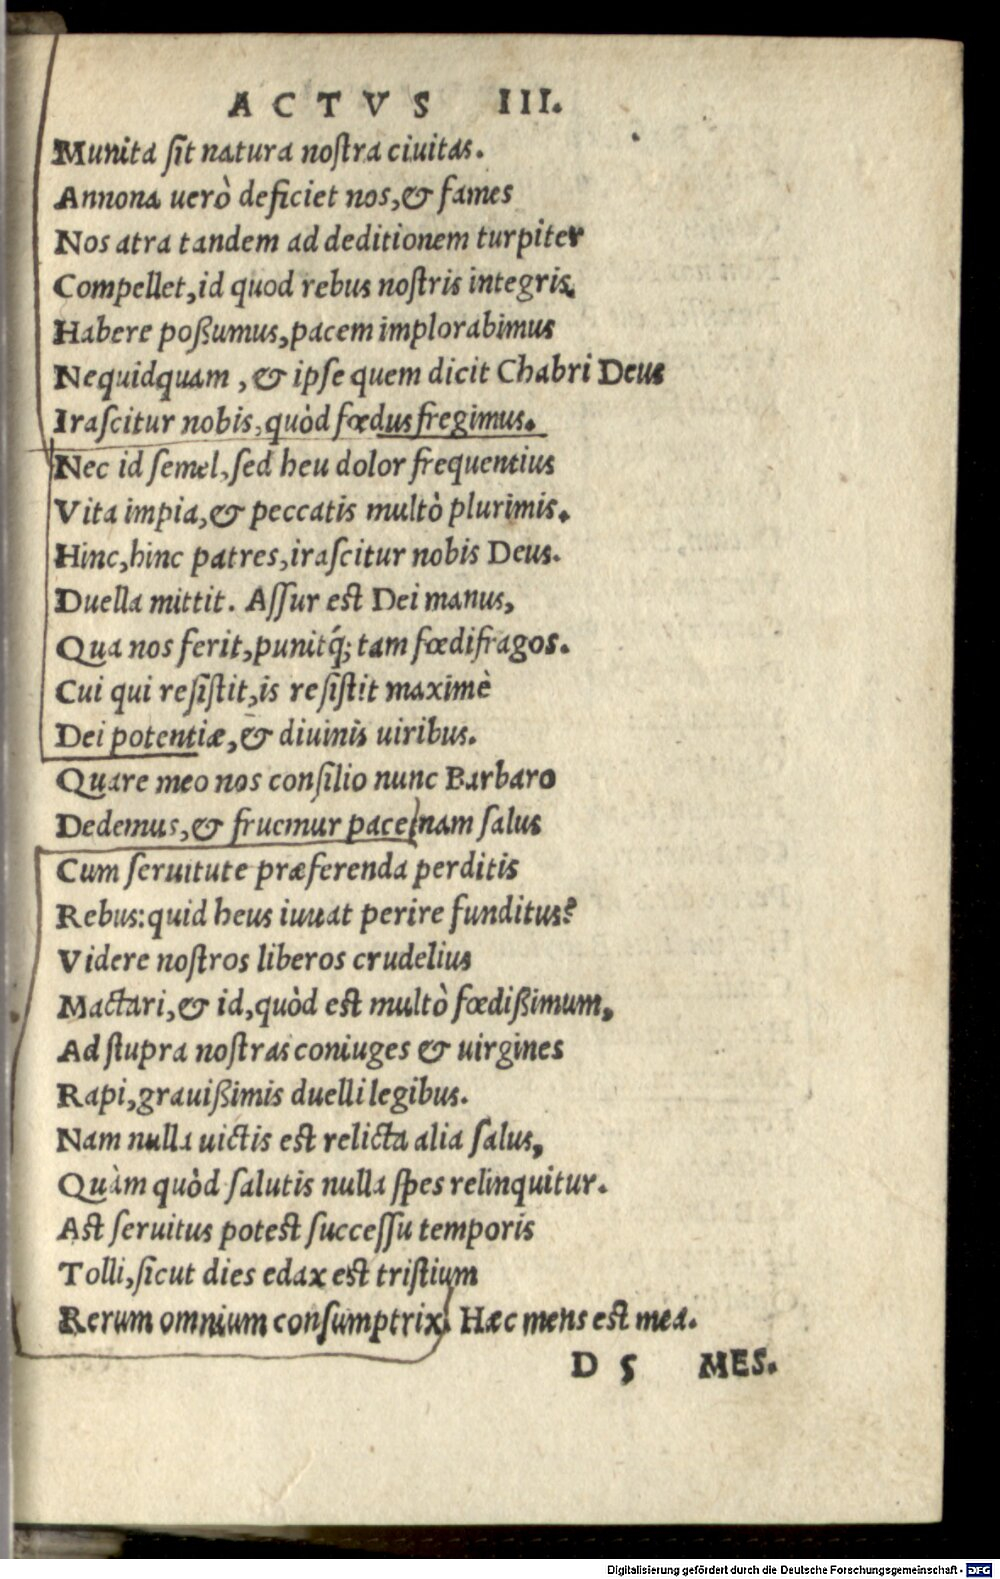 ACTVS III.
Munita ſit natura noſtra ciuitas.
Annona uerò deficiet nos, & fames
Nos atra tandem ad deditionem turpiter
Compellet, id quod rebus noſtris integris,
Habere poßumus, pacem implorabimus
Nequidquam, & ipſe quem dicit Chabri Deus
Iraſcitur nobis, quòd fœdus fregimus.
Nec id ſemel, ſed heu dolor frequentius
Vita impia, & peccatis multò plurimis.
Hinc, hinc patres, iraſcitur nobis Deus.
Duella mittit. Aſſur est Dei manus,
Qua nos ferit, punitq́; tam fœdifragos.
Cui qui reſiſtit, is reſiſtit maximè
Dei potentiæ, & diuinis uiribus.
Quare meo nos conſilio nunc Barbaro
Dedemus, & fruemur pace, nam ſalus
Cum ſeruitute præferenda perditis
Rebus: quid heus iuuat perire funditus?
Videre noſtros liberos crudelius
Mactari, & id, quòd est multò fœdißimum,
Ad ſtupra noſtras coniuges & uirgines
Rapi, grauißimis duelli legibus.
Nam nulla uictis est relicta alia ſalus,
Quàm quòd ſalutis nulla ſpes relinquitur.
Ast ſeruitus potest ſucceſſu temporis
Tolli, ſicut dies edax est triſtium
Rerum omnium conſumptrix. Hæc mens est mea.
D 5 MES.
Digitalisierung gefördert durch die Deutsche Forschungsgemeinschaft - DFG